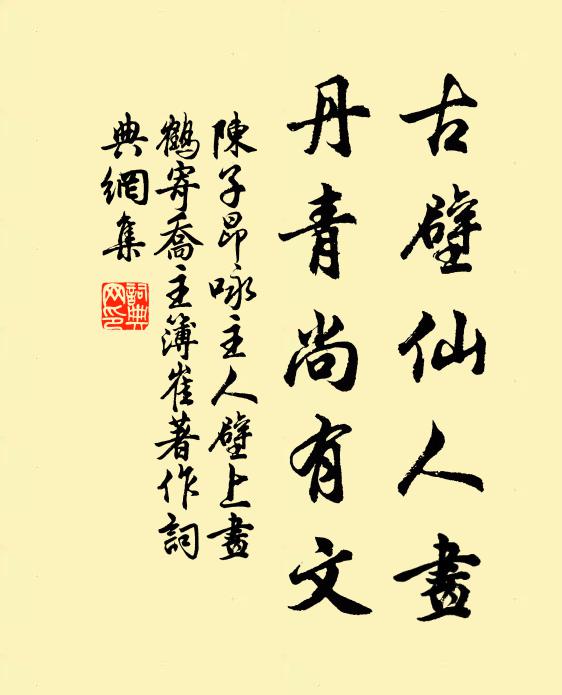 古壁仙人畫
丹青尚有文
陳子昂咏主人壁上畫
鶴寄喬主簿崔著作詞
典網集
詞典
网印